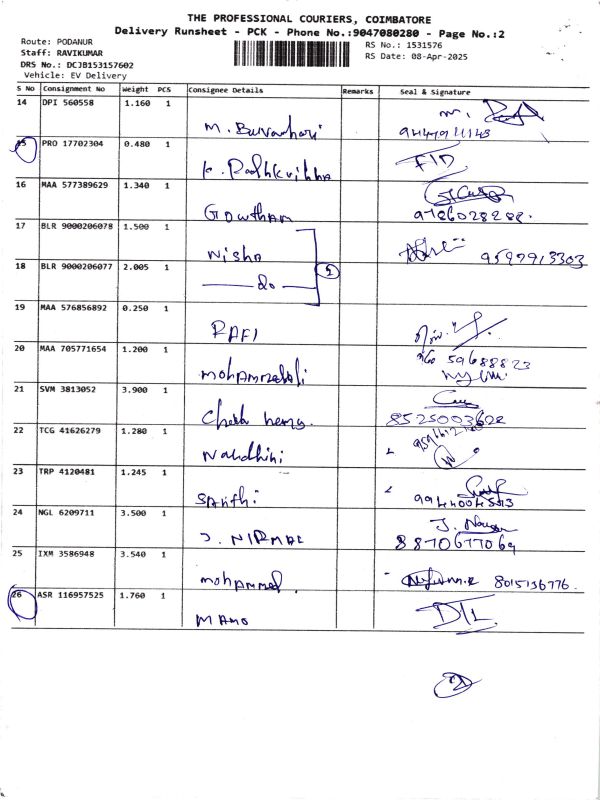 THE PROFESSIONAL COURIERS, COIMBATORE
Delivery Runsheet - PCK - Phone No.:9047080280 - Page No.:2
Route: PODANUR
Staff: RAVIKUMAR
DRS No.: DCJB153157602
Vehicle: EV Delivery
RS No.: 1531576
RS Date: 08-Apr-2025
S No Consignment No Weight PCS Consignee Details Remarks Seal & Signature
14 DPI 560558 1.160 1
15 PRO 17702304 0.480 1
16 MAA 577389629 1.340 1
Gowtham
17 BLR 9000206078 1.500 1
Nisha 9597913303
18 BLR 9000206077 2.005 1
do 2
19 MAA 576856892 0.250 1
RAFI
20 MAA 705771654 1.200 1
21 SVM 3813052 3.900 1
22 TCG 41626279 1.280 1
Nandhini
23 TRP 4120481 1.245 1
Santhi
24 NGL 6209711 3.500 1
J. NIRMAL 8870677069
25 IXM 3586948 3.540 1
Mohammed. 8015136776.
26 ASR 116957525 1.760 1
Mano
2